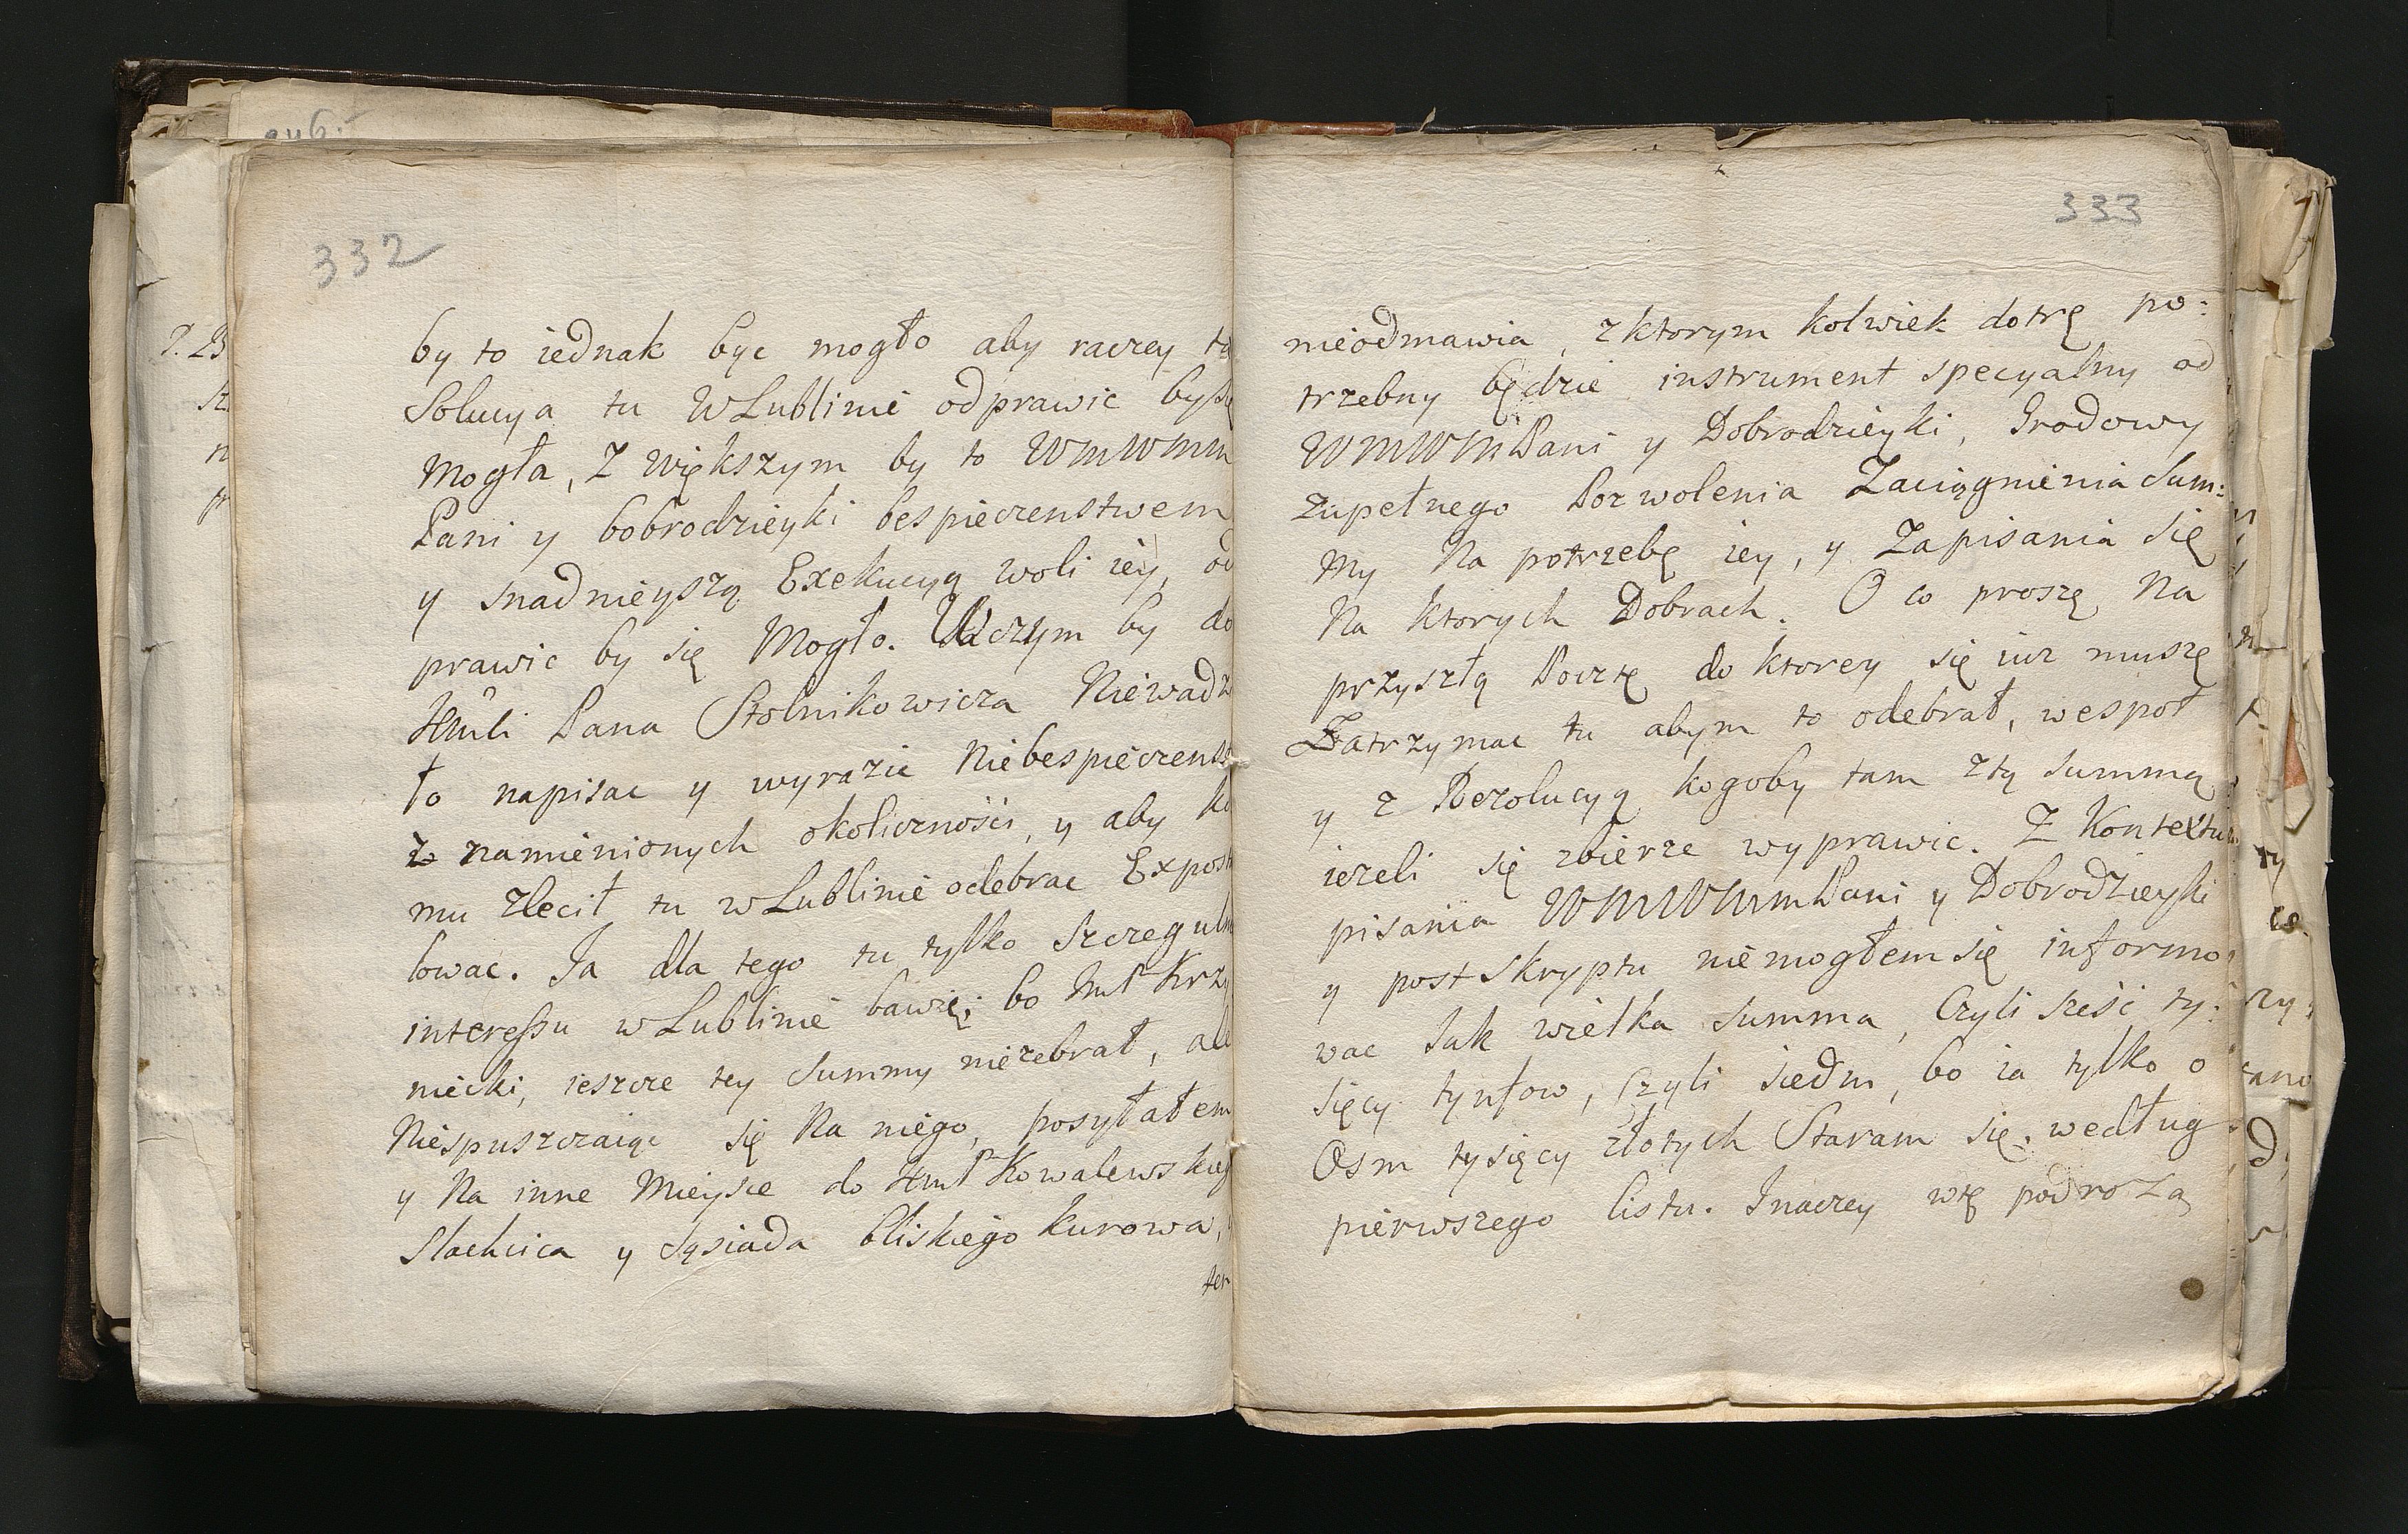 332
by to iednak byc mogło aby raczey ta
Solucya tu w Lublinie odprawic by się
Mogła, Z większym by to WMWMM
Pani y bobrodzieyki bespieczenstwem
y snadnieyszą Exekucyą woli iey, od
prawic by się Mogło. W czym by do
Jmści Pana Stolnikowicza Niewadzi
ło napisac y wyrazic Niebespieczenst
z namienionych okoliczności, y aby ko
mu zlecił tu w Lublinie odebrac Expostu
lowac. Ja dla tego tu tylko szczegulne
interessu w Lublinie bawię; bo JmP Krzy
niecki, ieszcze tey Summy niezebrał, ale
Niespuszczaiąc się Na niego, posyłałem
y Na inne Mieysce do JmP Kowalewskieg
Slachcica y Sąsiada bliskiego Kurowa,
ten
333
nieodmawia, z ktorym kolwiek dotrę po:
trzebny będzie instrument specyalny od
WMWM Pani y Dobrodzieyki, Grodowy
zupełnego Pozwolenia Zaciągnienia Sum:
My Na potrzebę iey, y Zapisania się
Na ktorych Dobrach. O co proszę Na
przyszłą Pocztę do ktorey się iuz muszę
Zatrzymac tu abym to odebrał, wespoł
y z Rezolucyą kogoby tam z tą summą
iezeli się zbierze wyprawic. Z Kontextu
pisania WMWMM Pani y Dobrodzieyki
y postskryptu niemogłem się informo
wac Jak wielka Summa, Czyli sześć ty:
sięcy tynfow, czyli siedm, bo ia tylko o
Osm tysięcy złotych Staram się. według
pierwszego listu. Inaczey w tę podrozą